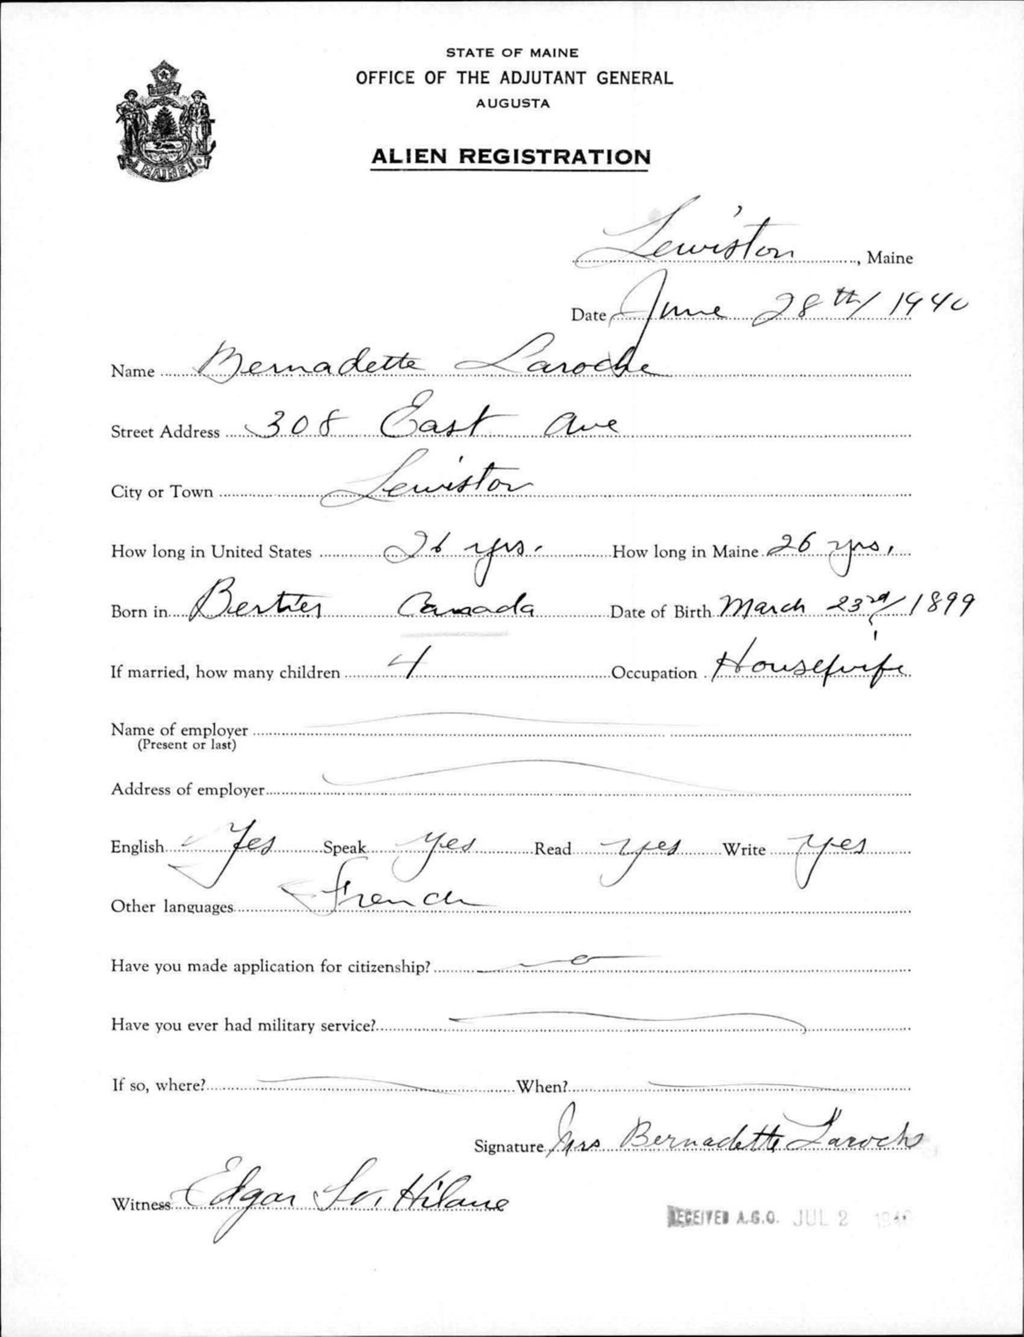 STATE OF MAINE
OFFICE OF THE ADJUTANT GENERAL
AUGUSTA
ALIEN REGISTRATION
MAINE
Lewiston, Maine
Date June 28th/1940
Name Bernadette Laroche
Street Address 308 East Ave
City or Town Lewiston
How long in United States 26 yrs. How long in Maine 26 yrs.
Born in Berthier Canada Date of Birth March 23rd/1899
If married, how many children 4 Occupation Housewife
Name of employer
(Present or last)
Address of employer
English Yes Speak Yes Read yes Write yes
Other languages French
Have you made application for citizenship? no
Have you ever had military service?
If so, where? When?
Signature Mrs Bernadette Laroche
Witness Edgar
RECEIVED A.G.O. JUL 2 1940